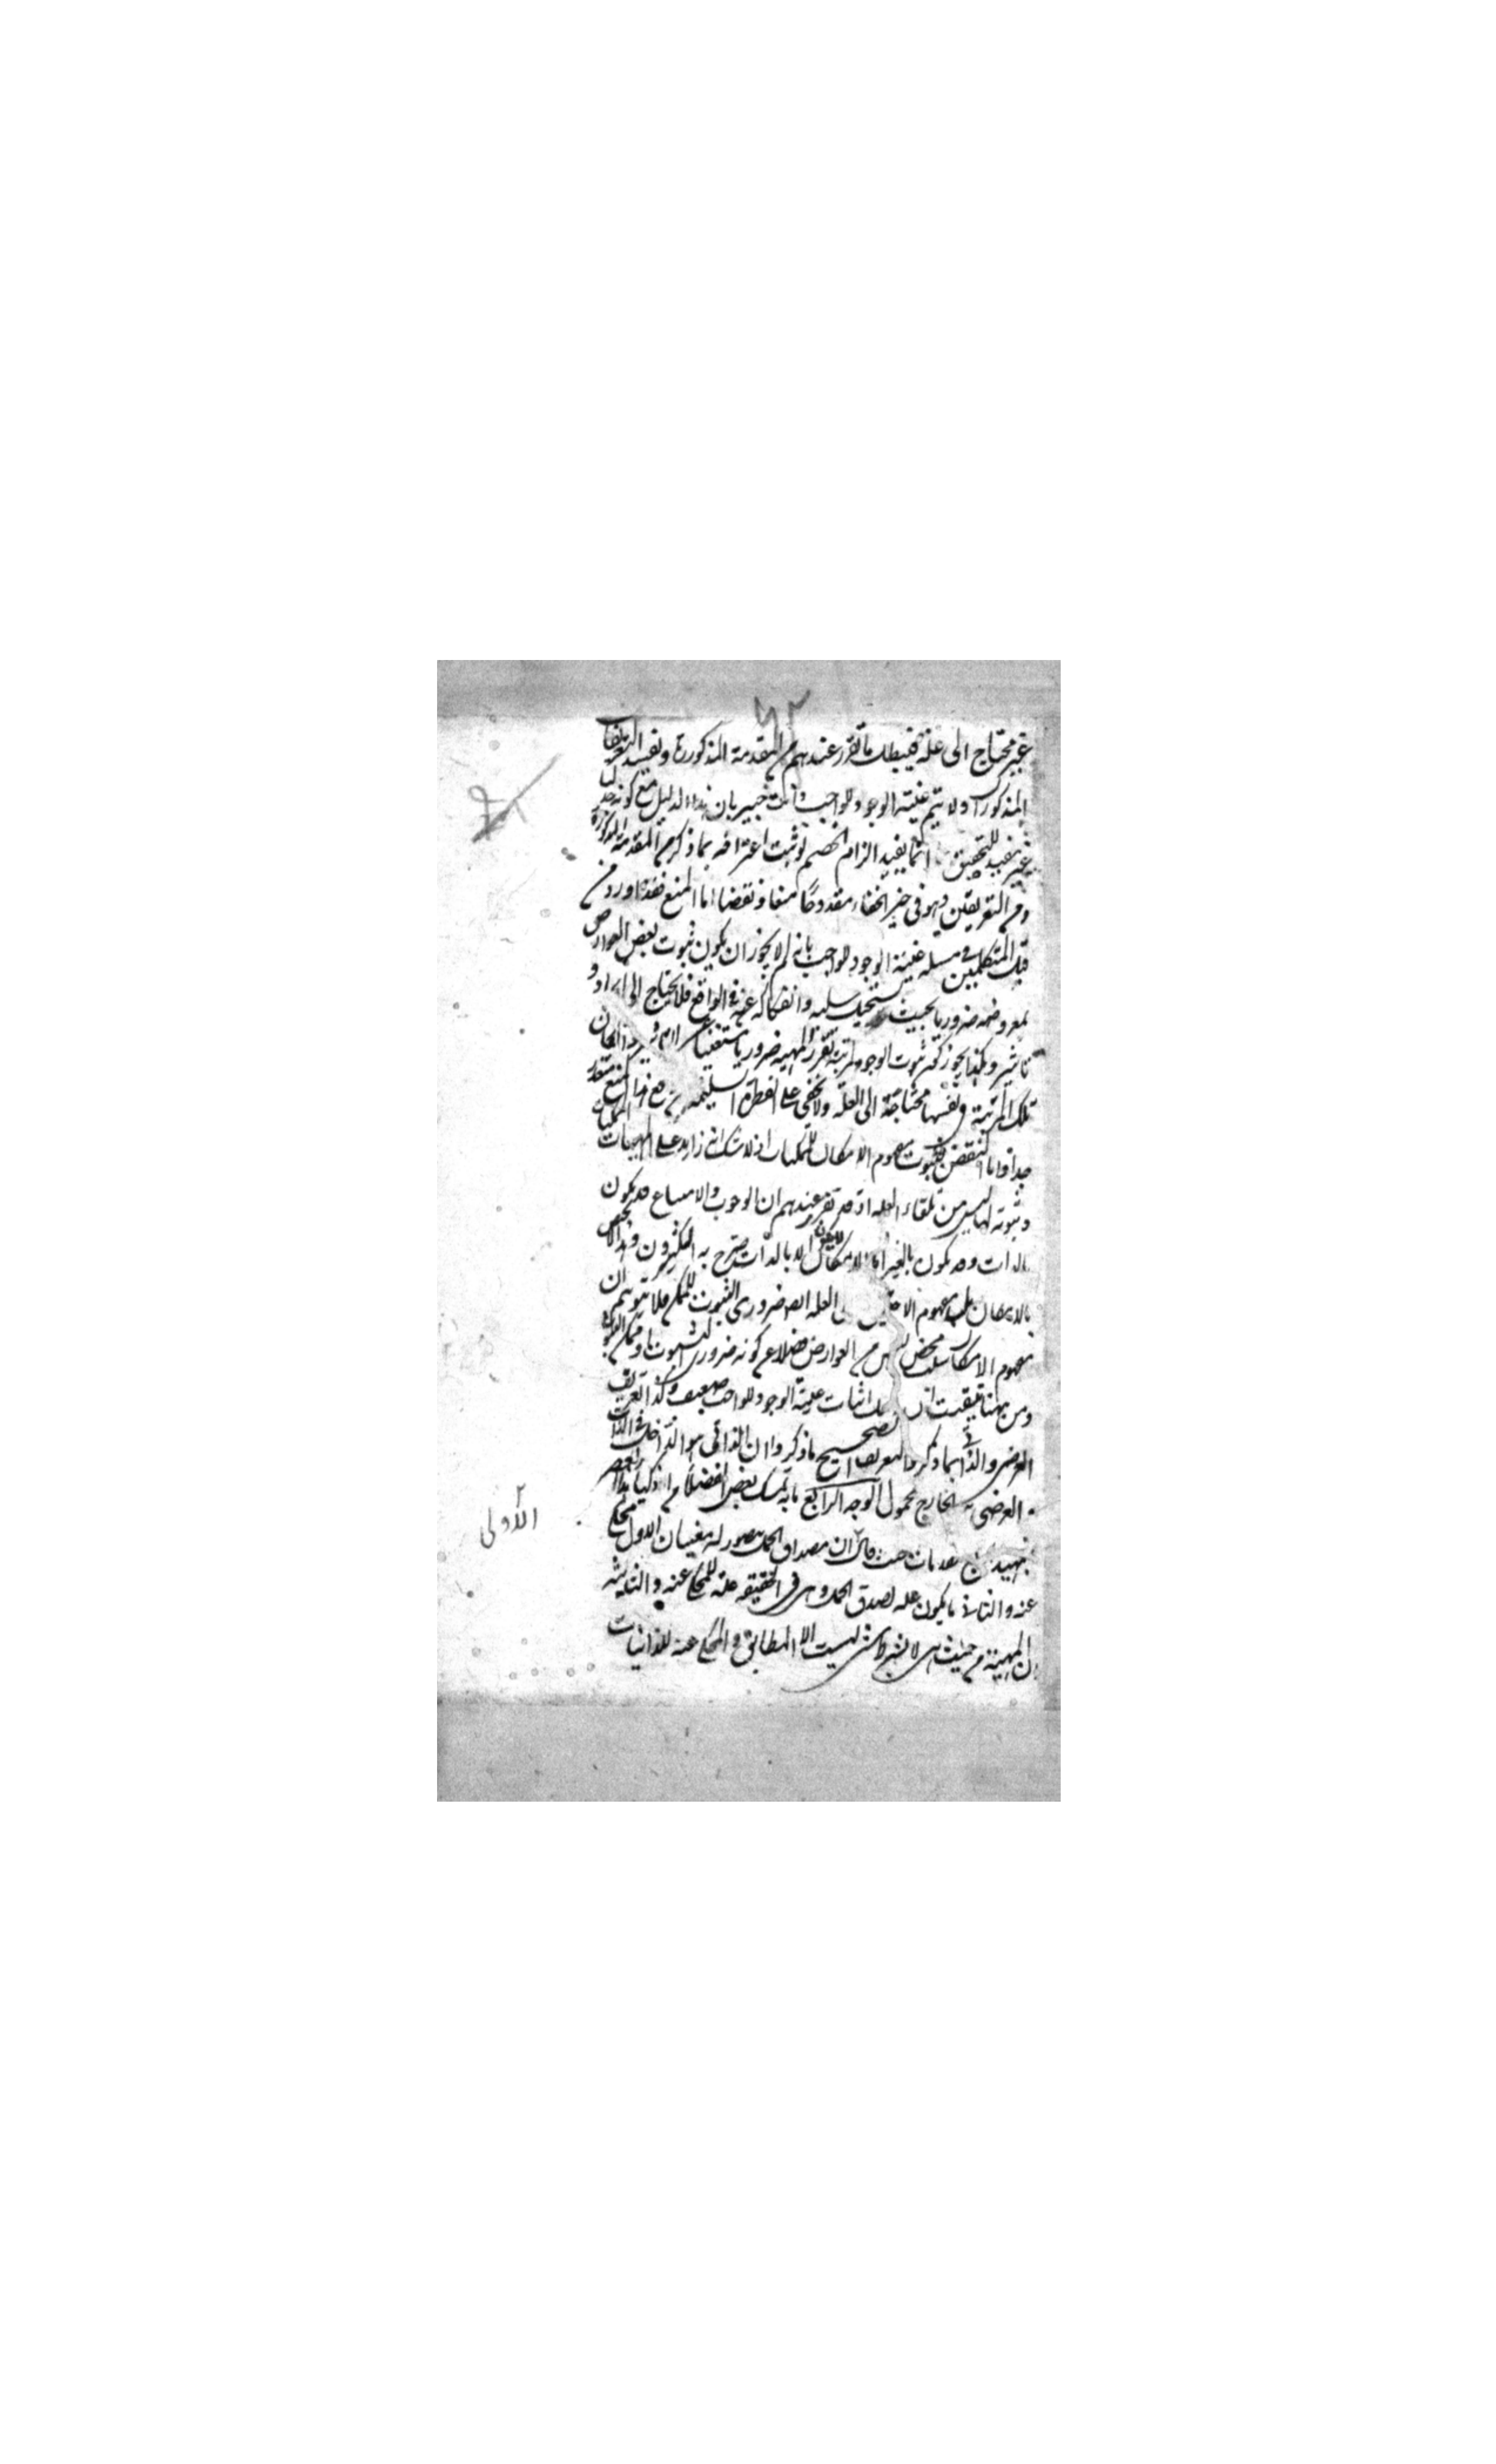 غير محتاج الى علة فيبطل ما تقرر عندهم من المقدمة المذكورة ويفسد التعريفان
المذكوران ولا يتم عينية الوجود للواجب وانت خبير بان هذا الدليل مع كونه جدليا
غير مفيد للتحقيق انما يفيد الزام الخصم لو ثبت اعترافه بما ذكر من المقدمة المذكورة
ومن التعريفين وهو في حيز الخفاء مقدوح منعا ونقضا اما المنع فقد اورد من
قبل المتكلمين في مسئلة عينية الوجود للواجب بانه لم لا يجوز ان يكون ثبوت بعض العوارض
لمعروضه ضروريا بحيث يستحيل سلبه وانفكاكه عنه في الواقع فلا يحتاج الى ايراد و
تاثير وهكذا يجوز كون ثبوت الوجود لمرتبة تقرر المهية ضروريا مستغنيا وان كان
تلك المرتبة ونفسها محتاجة الى العلة ولا يخفى على الفطرة السليمة هذا المنع
جدا واما النقض فبثبوت مفهوم الامكان للممكنات اذ لا شك انه زايد على المهيات
وثبوته لها ليس من تلقاء العلة اذ قد تقرر عندهم ان الوجوب والامتناع قد يكون
بالذات وقد يكون بالغير اما الامكان لا يكون الا بالذات صرح به الاكثرون وهذا لا يختص
بالامكان بل مفهوم الاحتياج الى العلة ايضا ضروري الثبوت للممكن فلا يتوهم ان
مفهوم الامكان سلب محض ليس من العوارض فضلا عن كونه ضروري الثبوت
ومن ههنا تيقنت ان اثبات عينية الوجود للواجب ضعيف وكذا تعريف
العرضي والذاتي بما ذكر والتعريف الصحيح ما ذكروا ان الذاتي هو الداخل في الذات
والعرضي الخارج محمول الوجه الرابع ما به تمسك بعض الفضلاء من اذكياء هذا العصر
بتمهيد مقدمات حيث قال ان مصداق الحمل يتصور له معنيان الاول المحكي
عنه والثاني ما يكون علة لصدق الحمل وهي في الحقيقة علة للمحكي عنه والثانية
ان المهية من حيث هي لا بشرط شئ ليست الا المطابق والمحكي عنه للذاتيات
الاولى